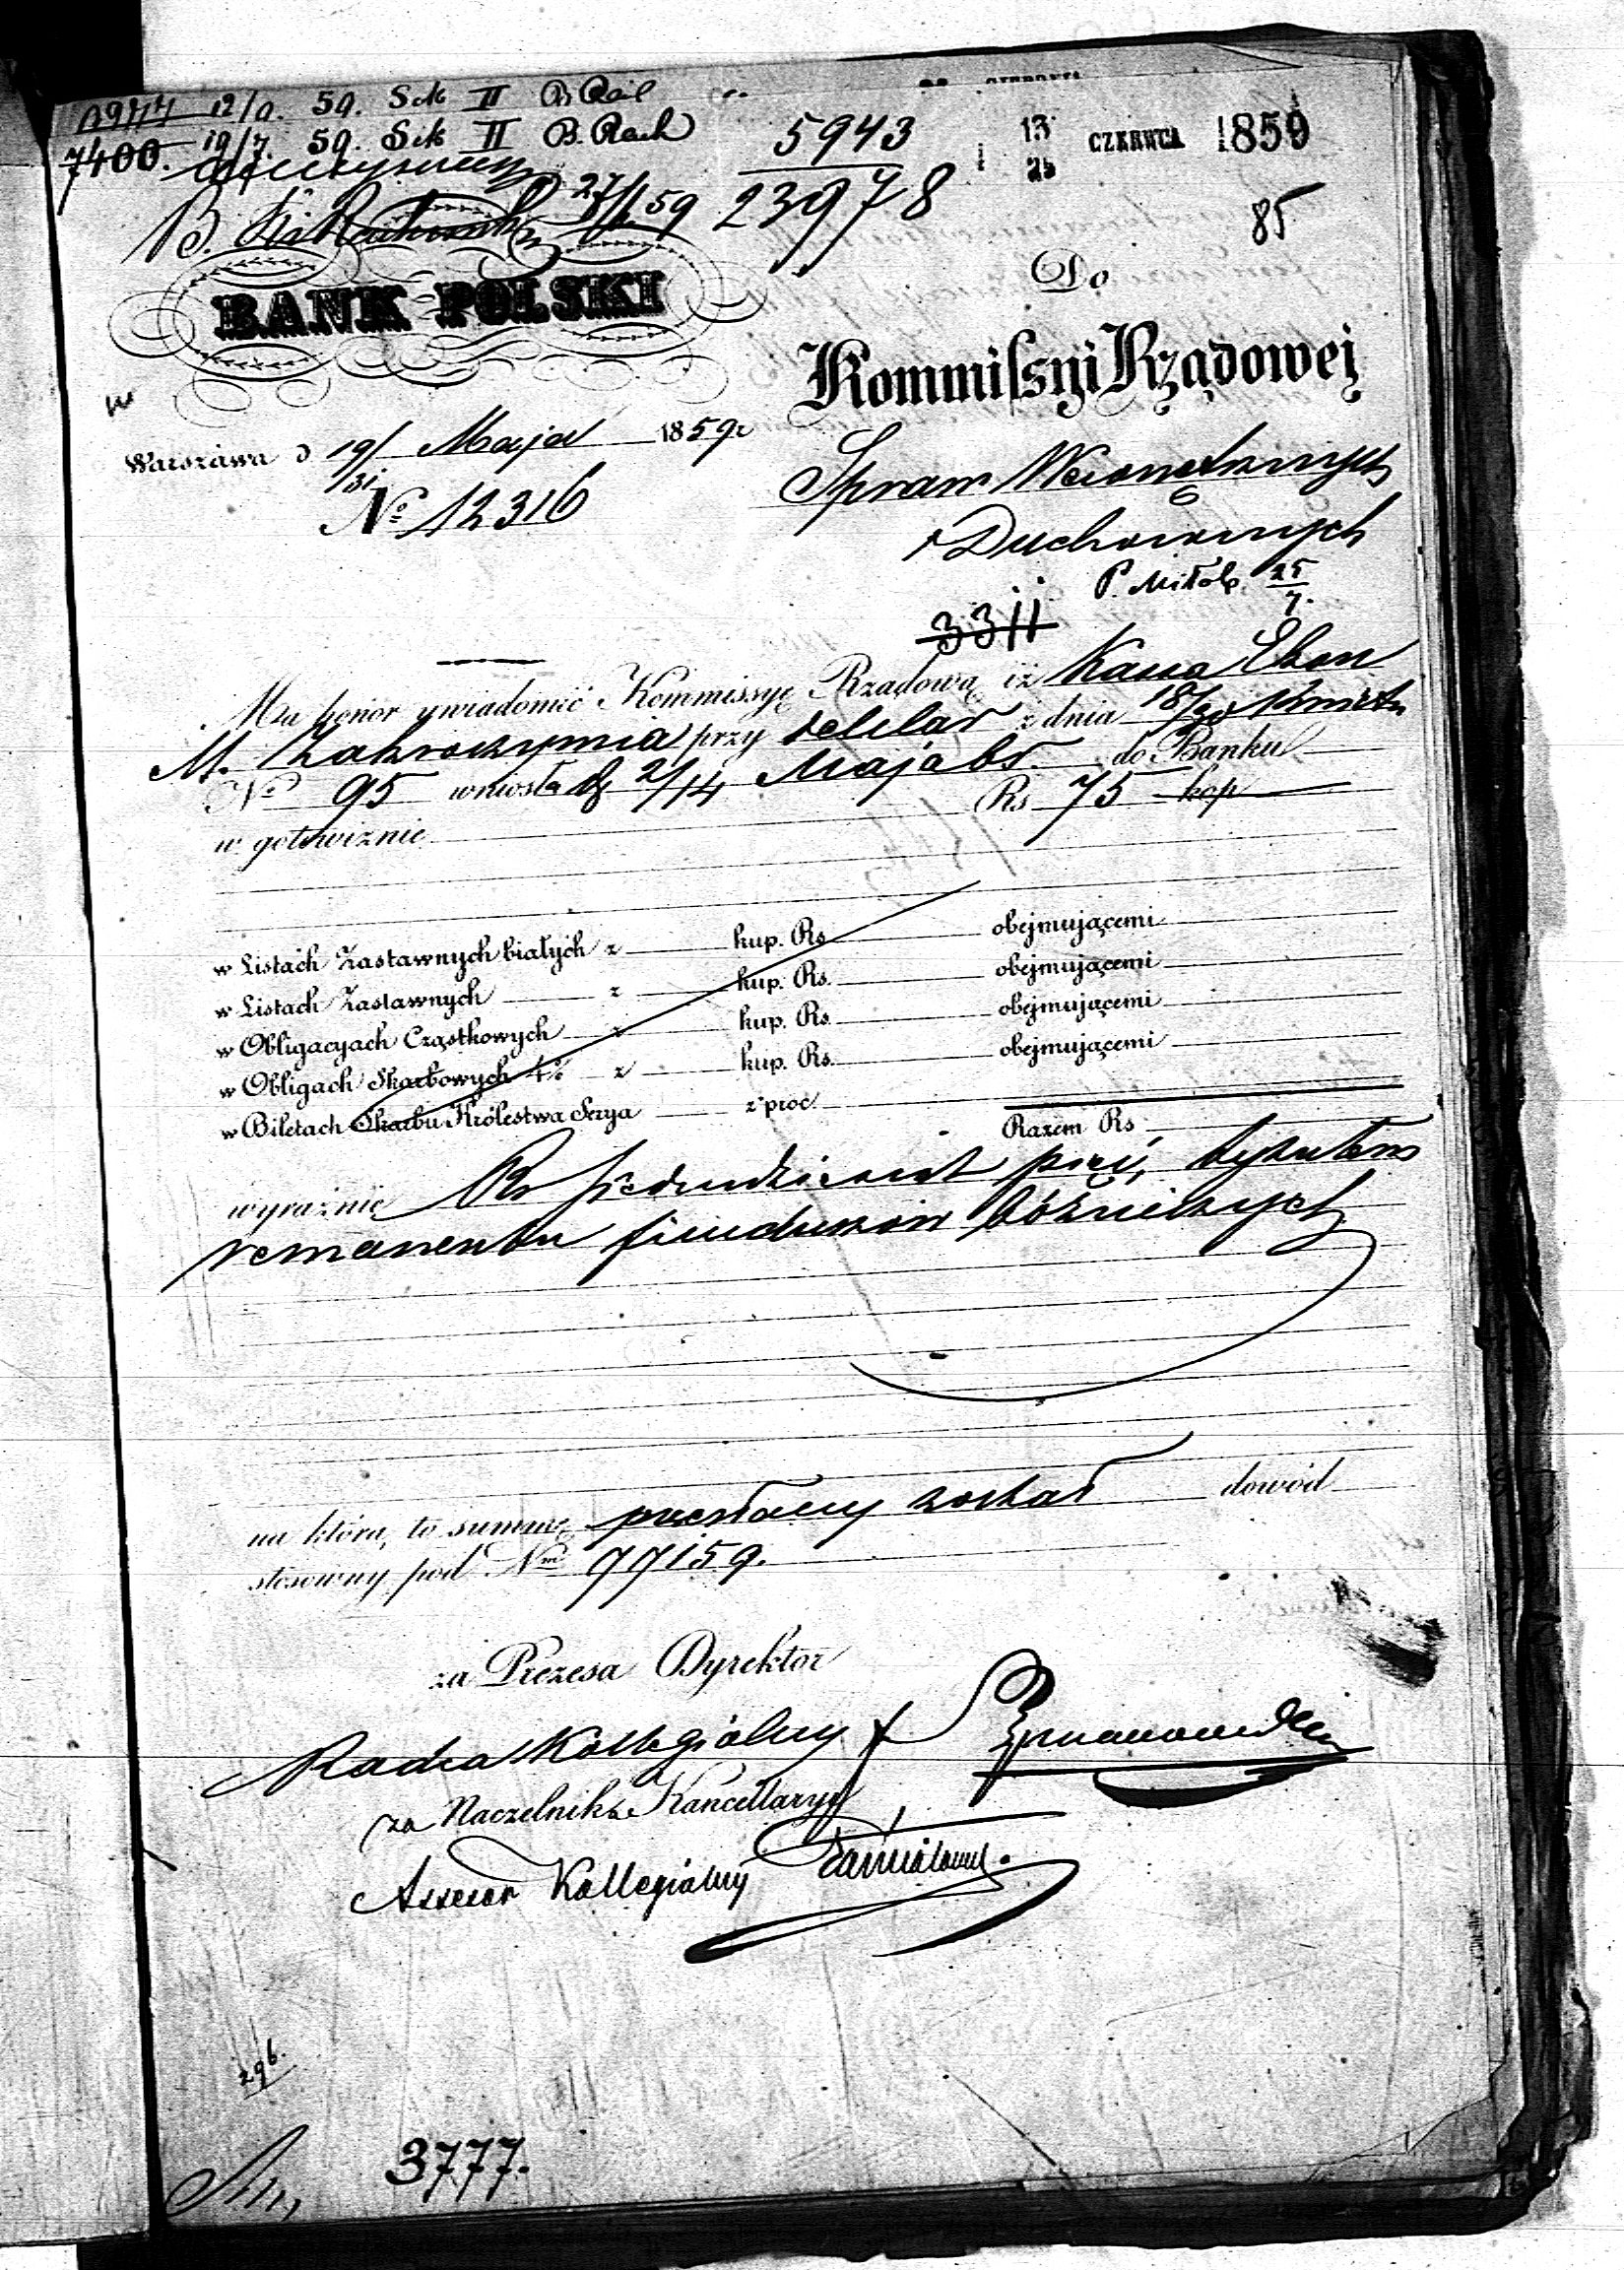 12/9. 59. Sek II B. Rach
7400. 19/7. 59. Sek II B. Rach
5943
23978
13
25
CZERWCA 1859
B. 27/6 59
85
BANK POLSKI
Do
Kommissyi Rządowej
Warszawa d 19/31 Maja 1859 r
№ 12316
Spraw Wewnętrznych
i Duchownych
25/7.
3311
Ma honor uwiadomić Kommissyę Rządową iż Kassa Ekon
M. Zakroczymia przy z dnia 18/30 Kwietn
No 95 wniosła d. 2/14 Maja br. do Banku
w gotowiźnie Rs 75 kop
w Listach Zastawnych białych z kup. Rs obejmującemi
w Listach Zastawnych z kup. Rs. obejmującemi
w Obligacyach Cząstkowych z kup. Rs. obejmującemi
w Obligach Skarbowych 4% z kup. Rs. obejmującemi
w Biletach Skarbu Królestwa Serya z proc.
Razem Rs
wyraźnie Rs siedmdziesiąt pięć, tytułem
remanentu funduszów bóżniczych
na którą to summę przesłany został dowód
stosowny pod Nrm 77159.
za Prezesa Dyrektor
Radca Kollegialny
za Naczelnika Kancellaryi
Assesor Kollegialny
296.
3777.